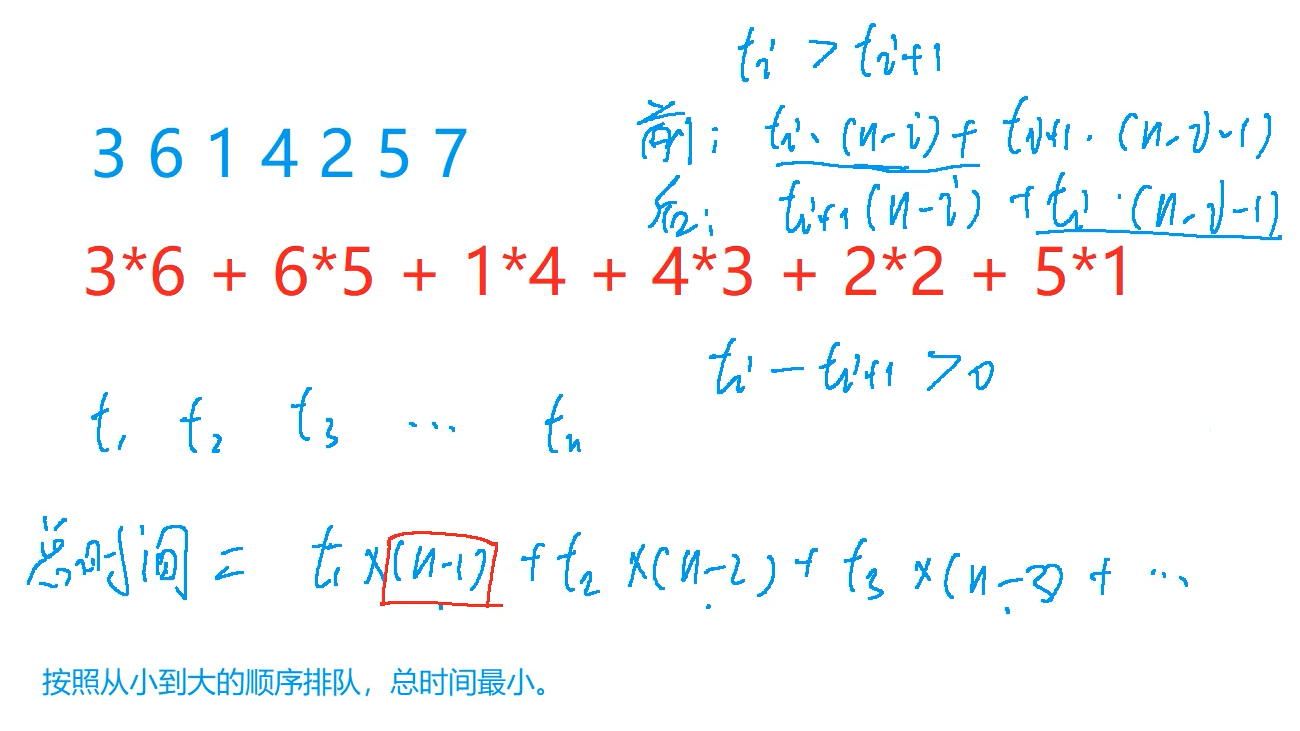 tᵢ > tᵢ₊₁
3 6 1 4 2 5 7
前: tᵢ · (n-i) + tᵢ₊₁ · (n-i-1)
后: tᵢ₊₁ (n-i) + tᵢ · (n-i-1)
3*6 + 6*5 + 1*4 + 4*3 + 2*2 + 5*1
tᵢ - tᵢ₊₁ > 0
t₁ t₂ t₃ ... tₙ
总时间 = t₁ ×(n-1) + t₂ ×(n-2) + t₃ ×(n-3) + ...
按照从小到大的顺序排队，总时间最小。